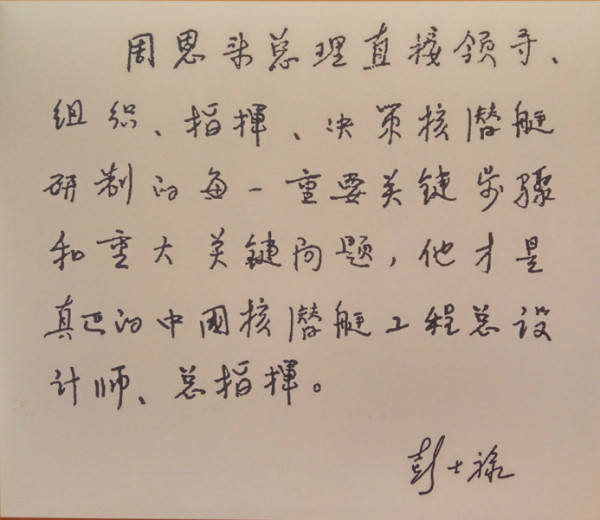 周恩来总理直接领导、
组织、指揮、决策核潜艇
研制的每一重要关键步骤
和重大关键问题，他才是
真正的中國核潜艇工程总设
计师、总指揮。
彭士禄